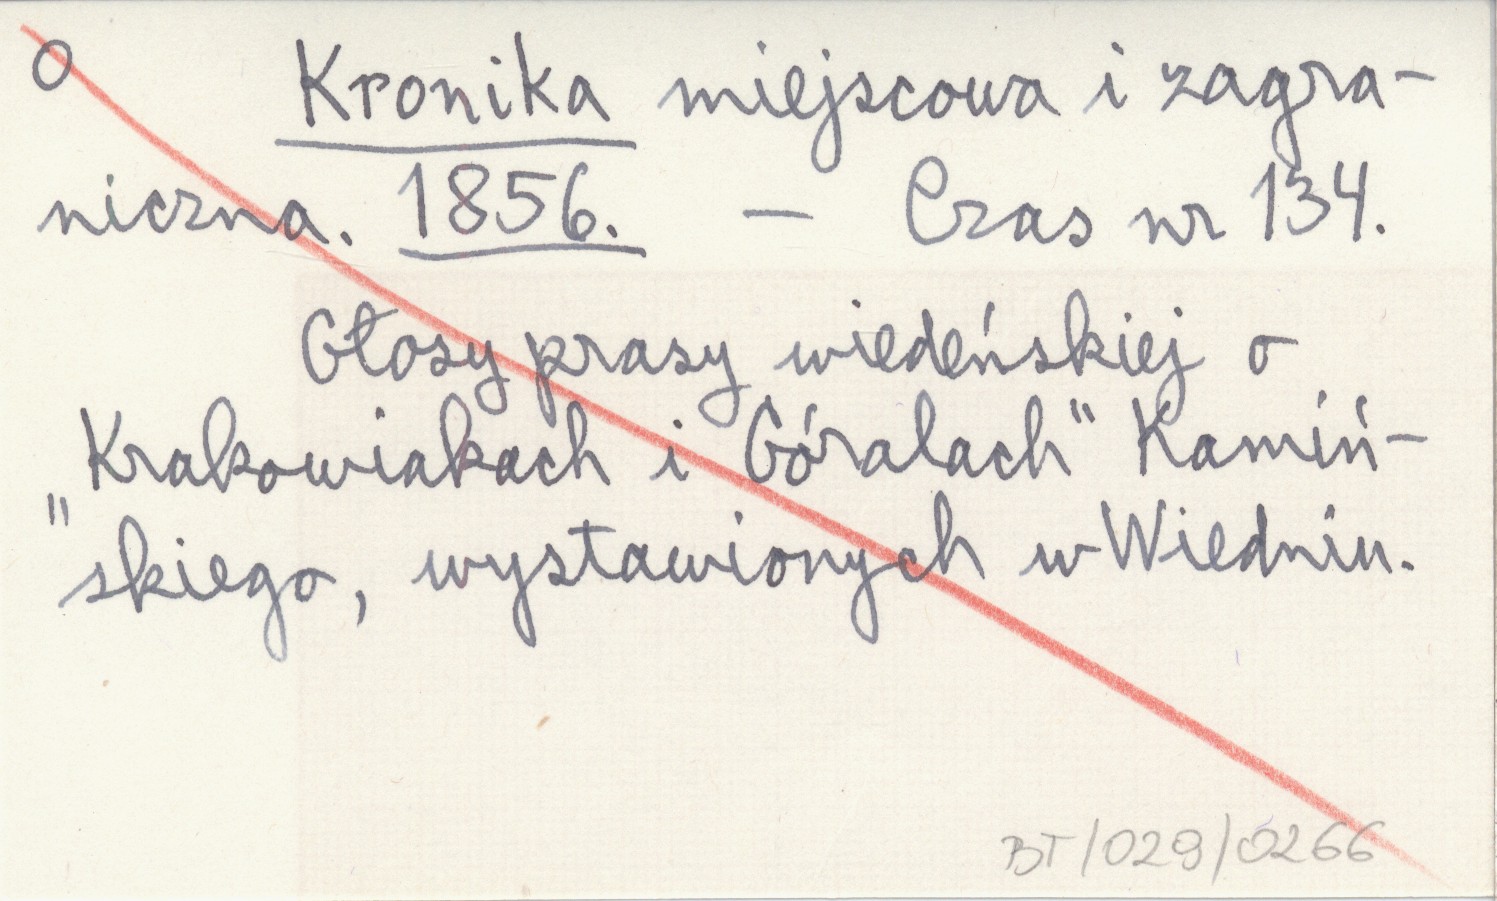 O Kronika miejscowa i zagra-
niczna. 1856. — Czas nr 134.
Głosy prasy wiedeńskiej o
"Krakowiakach i Góralach" Kamiń-
skiego, wystawionych w Wiedniu.
BT/029/0266